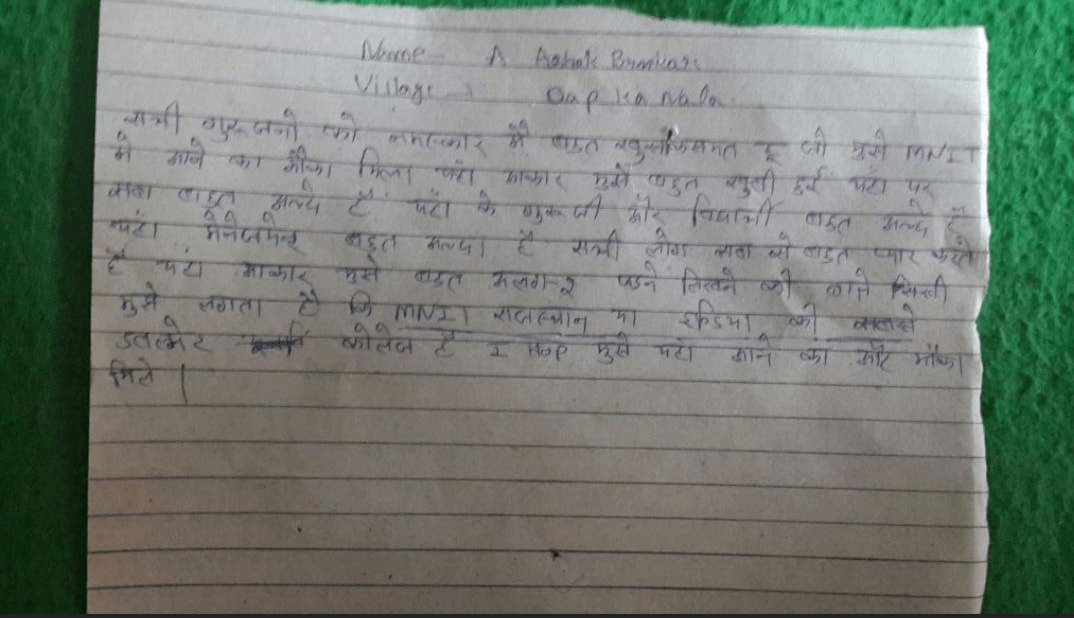 Name - A Ashok Bunkar
Village - Dap ka Nala
सभी गुरुजनो को नमस्कार मै बहुत खुसकिसमत हू जो मुझे MNIT
मे आने का मौका मिला यहां आकार मुझे बहुत खुशी हुई यहां पर
बाबा बहुत अच्छे है यहां के गुरुजी और विद्यार्थी बहुत अच्छे है
यहां मेनेजमेन्ट बहुत अच्छा है सभी लोग बाबा से बहुत प्यार करते
है यहां आकार मुझे बहुत अलग-2 पडने लिखने की बाते सिखी
मुझे लगता है कि MNIT राजस्थान या इण्डिया की सबसे
कोलेज है I Hop मुझे यहां आने का और मौका
मिले |